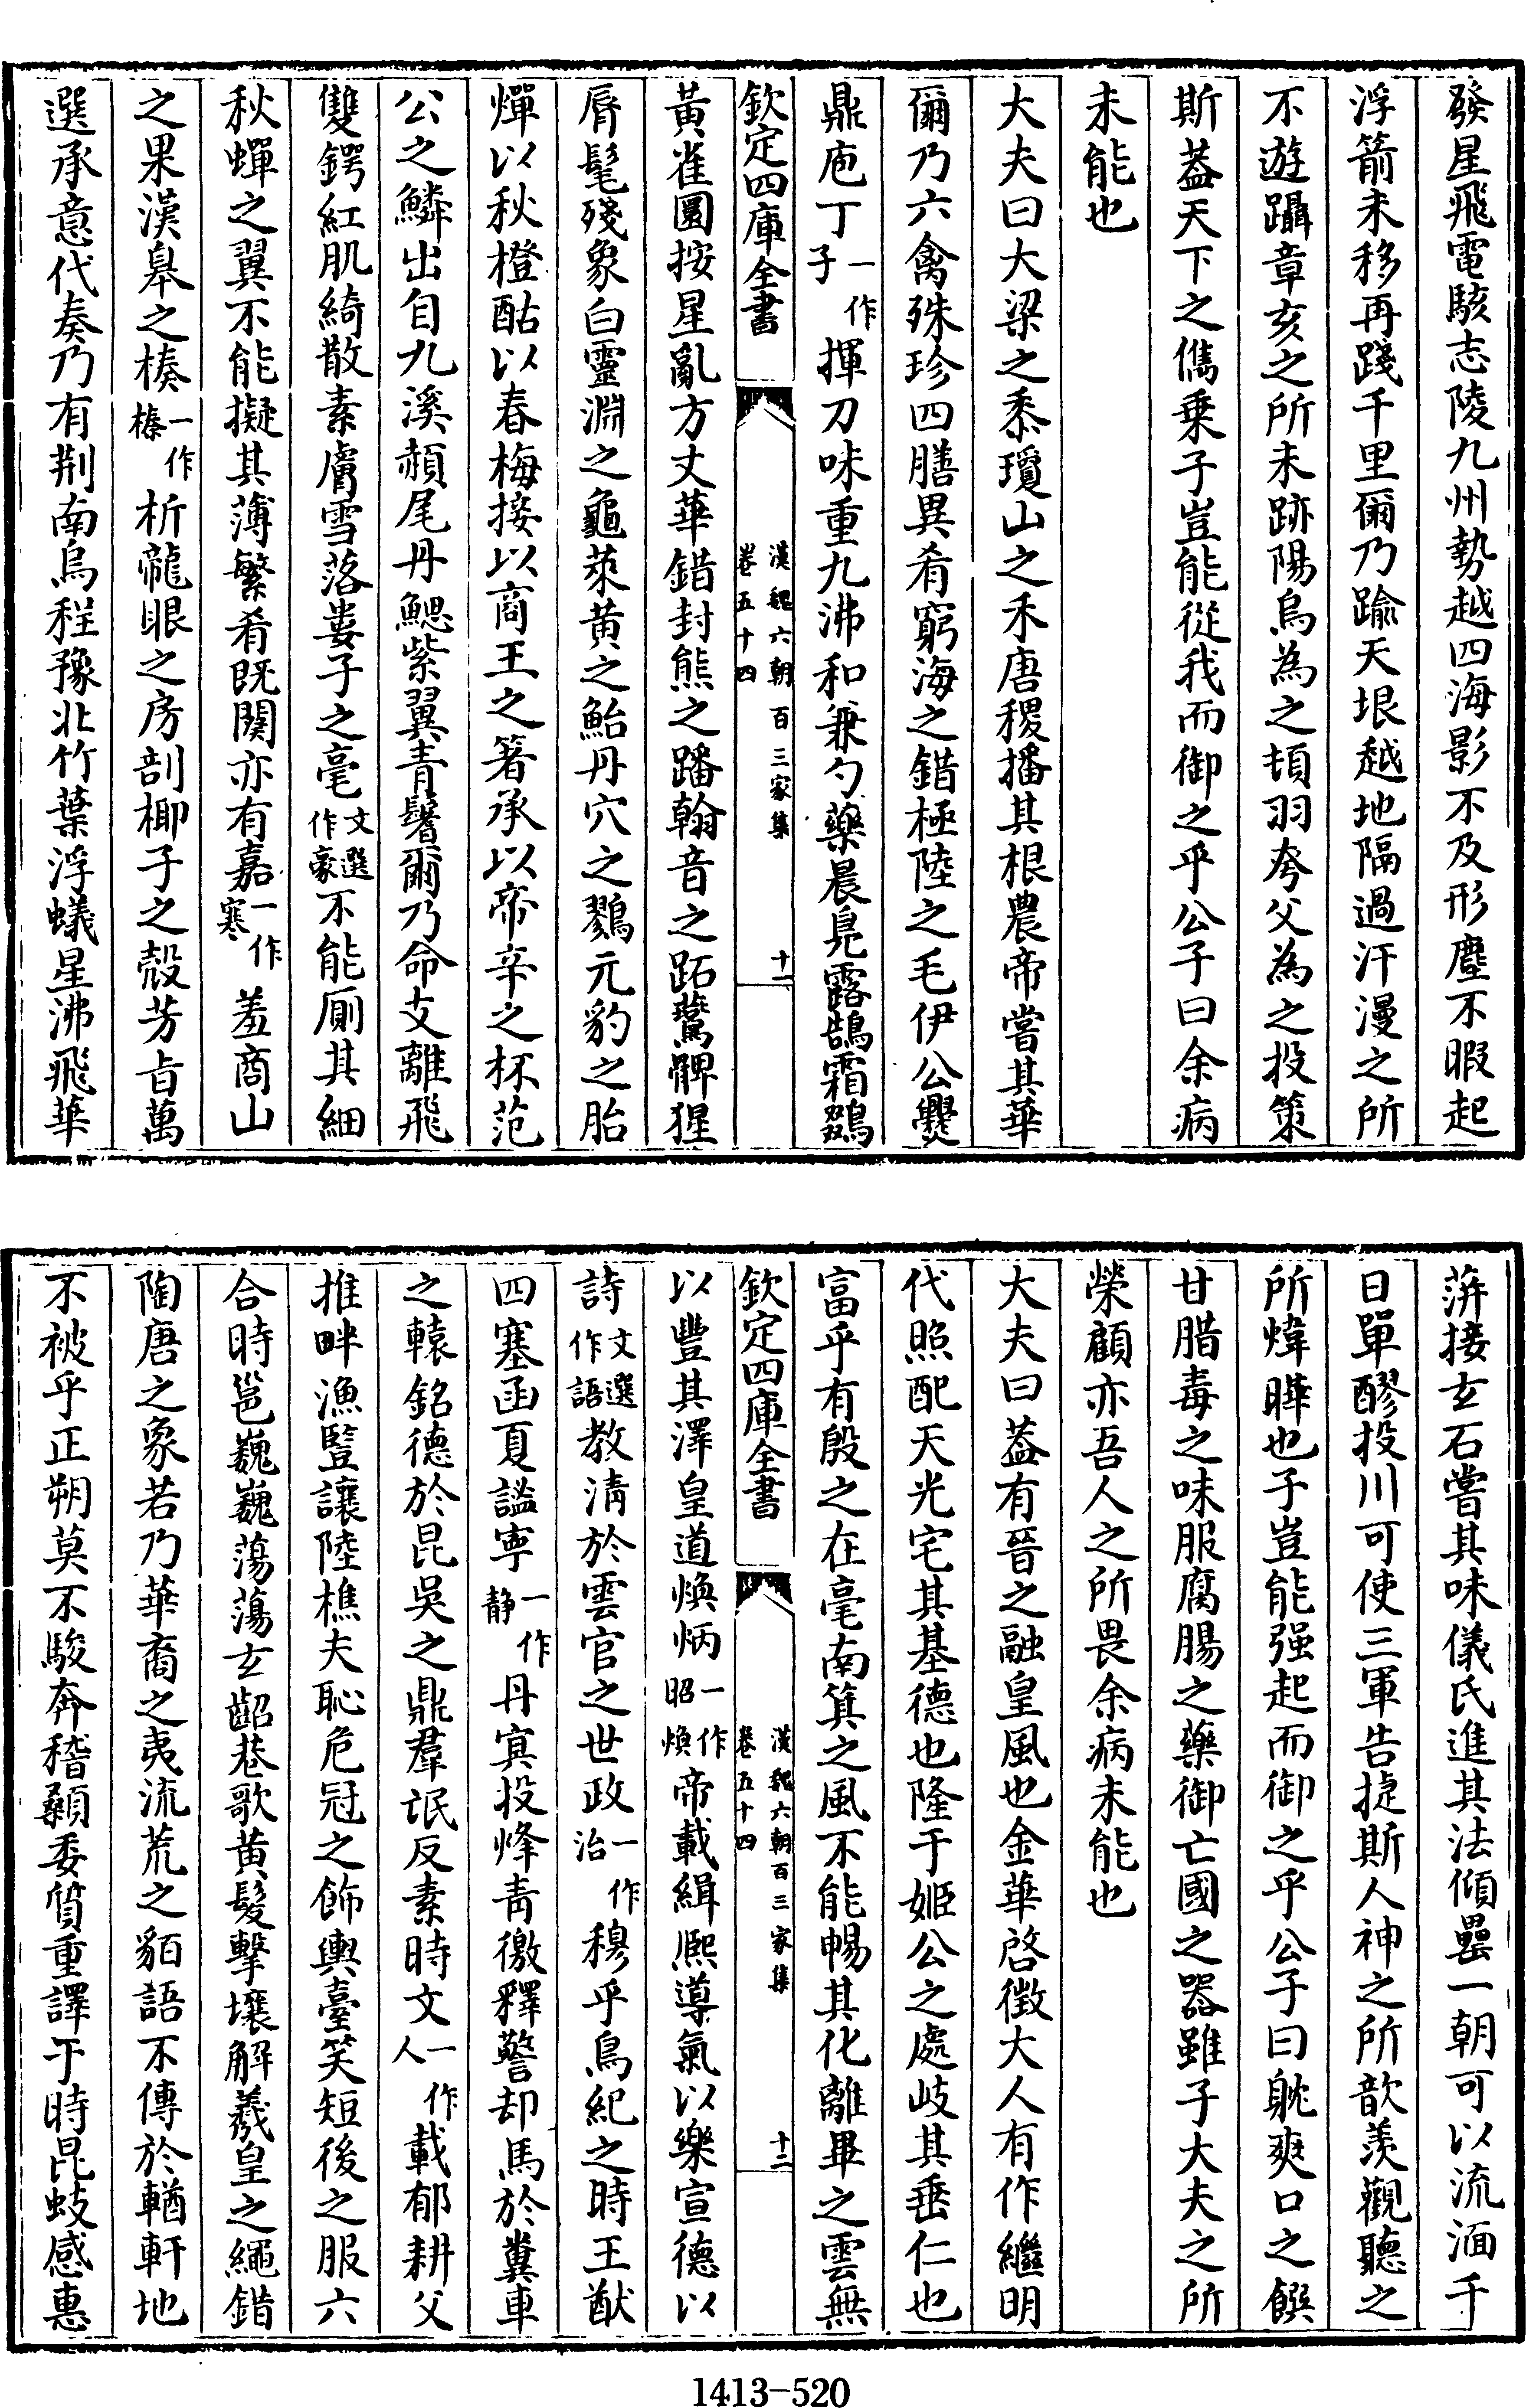 發星飛電駭志陵九州勢越四海影不及形塵不暇起
浮箭未移再踐千里爾乃踰天垠越地隔過汗漫之所
不遊躡章亥之所未跡陽烏為之頓羽夸父為之投策
斯葢天下之儁乗子豈能從我而御之乎公子曰余病
未能也
大夫曰大梁之黍瓊山之禾唐稷播其根農帝嘗其華
爾乃六禽殊珍四膳異肴窮海之錯極陸之毛伊公爨
鼎庖丁一作子揮刀味重九沸和兼勺藥晨鳧露鵠霜鵽
欽定四庫全書 漢魏六朝百三家集 卷五十四 十一
黃雀圜按星亂方丈華錯封熊之蹯翰音之跖鷰髀猩
脣髦殘象白靈淵之龜萊黄之鮐丹穴之鷚元豹之胎
燀以秋橙酤以春梅接以商王之箸承以帝辛之杯范
公之鱗出自九溪頳尾丹鰓紫翼青鬐爾乃命支離飛
雙鍔紅肌綺散素膚雪落婁子之毫文選作豪不能厠其細
秋蟬之翼不能擬其薄繁肴既闋亦有嘉一作寒羞商山
之果漢皐之楱一作榛析龍眼之房剖椰子之殼芳㫖萬
選承意代奏乃有荆南烏程豫北竹葉浮蟻星沸飛華
蓱接玄石嘗其味儀氏進其法傾罍一朝可以流湎千
日單醪投川可使三軍告捷斯人神之所歆羨觀聽之
所煒曄也子豈能强起而御之乎公子曰躭爽口之饌
甘腊毒之味服腐腸之藥御亡國之器雖子大夫之所
榮顧亦吾人之所畏余病未能也
大夫曰葢有晉之融皇風也金華啓徴大人有作繼明
代照配天光宅其基德也隆于姬公之處岐其垂仁也
富乎有殷之在亳南箕之風不能暢其化離畢之雲無
欽定四庫全書 漢魏六朝百三家集 卷五十四 十二
以豐其澤皇道煥炳一作昭煥帝載緝熙導氣以樂宣德以
詩文選作語教清於雲官之世政一作治穆乎鳥紀之時王猷
四塞函夏謐寕一作静丹冥投烽青徼釋警却馬於糞車
之轅銘德於昆吳之鼎羣氓反素時文一作人載郁耕父
推畔漁豎讓陸樵夫恥危冠之飾輿臺笑短後之服六
合時邕巍巍蕩蕩玄齠巷歌黄髮擊壤解羲皇之繩錯
陶唐之象若乃華裔之夷流荒之貊語不傳於輶軒地
不被乎正朔莫不駿奔稽顙委質重譯于時昆蚑感惠
1413-520